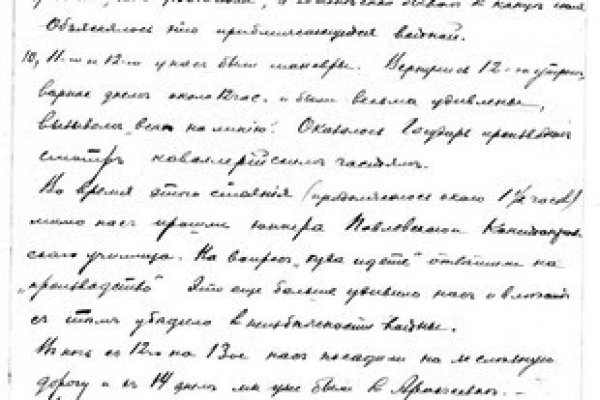 Объяснялось это приближающейся войной.
10, 11-го и 12-го у нас были маневры. Вернулись 12-го утром,
вернее днем около 12 час. и были весьма удивлены,
вызовом „всех на линию“. Оказалось Государь производит
смотр кавалерийским частям.
Во время этого стояния (продолжалось около 1½ часов)
мимо нас прошли юнкера Павловского
училища. На вопрос „куда идете“ ответили на
„производство“ Это еще больше удивило нас и
с тем убедило в неизбежности войны.
В ночь с 12го на 13ое нас посадили на железную
дорогу и 14 днем мы уже были в